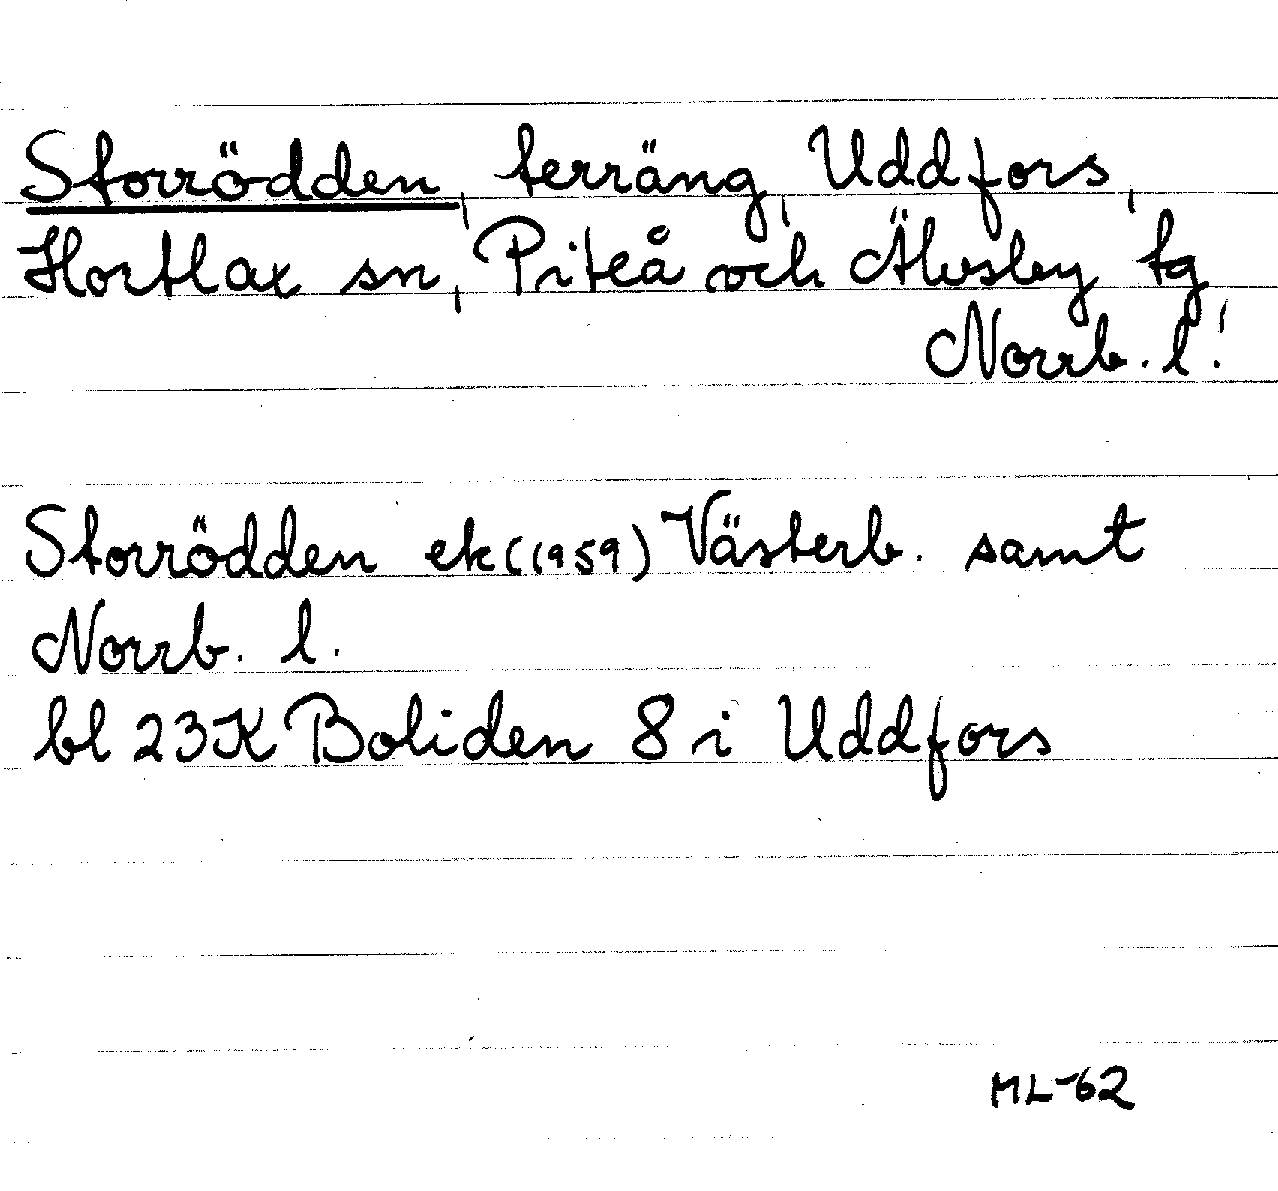 Storrödden, terräng, Uddfors,
Hortlax sn, Piteå och Älvsby tg,
Norrb. l.
Storrödden ek (1959) Västerb. samt
Norrb. l.
bl 23K Boliden 8 i Uddfors
ML-62